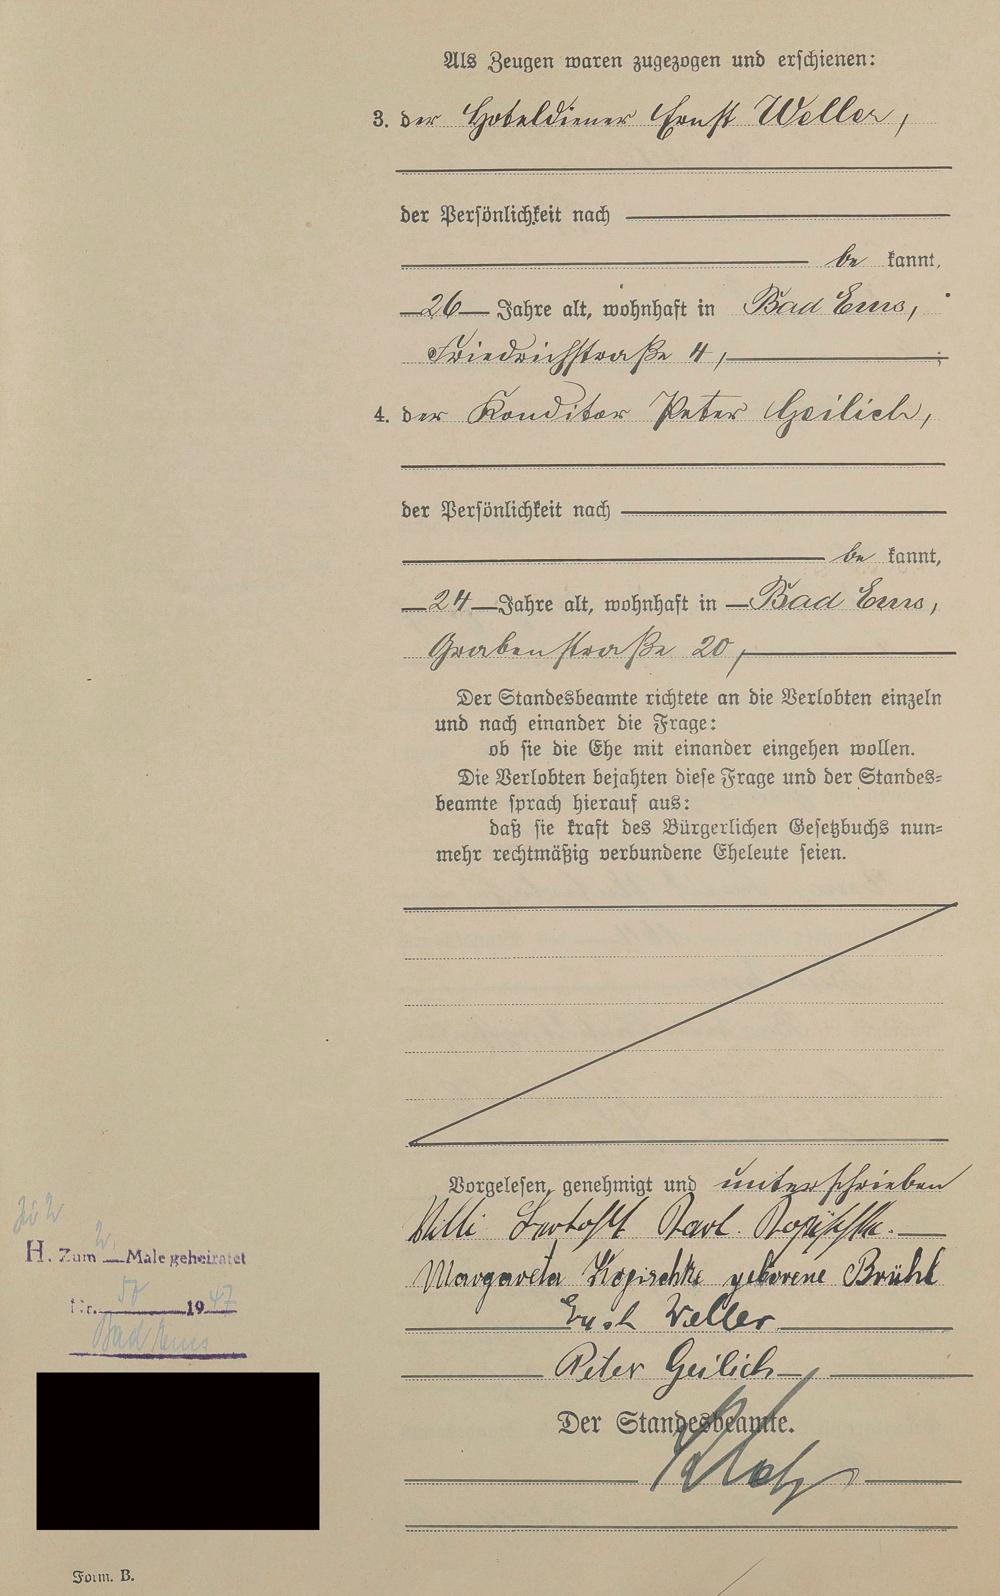 Als Zeugen waren zugezogen und erschienen:
3. der Hoteldiener Ernst Weller,
der Persönlichkeit nach
be kannt,
26 Jahre alt, wohnhaft in Bad Ems,
Friedrichstraße 4,
4. der Konditor Peter Geilich,
der Persönlichkeit nach
be kannt,
24 Jahre alt, wohnhaft in Bad Ems,
Grabenstraße 20,
Der Standesbeamte richtete an die Verlobten einzeln
und nach einander die Frage:
ob sie die Ehe mit einander eingehen wollen.
Die Verlobten bejahten diese Frage und der Standes=
beamte sprach hierauf aus:
daß sie kraft des Bürgerlichen Gesetzbuchs nun=
mehr rechtmäßig verbundene Eheleute seien.
Vorgelesen, genehmigt und unterschrieben
Willi Karl Kopischke.
Margareta Kopischke geborene Brühl
Ernst Weller
Peter Geilich
Der Standesbeamte.
H. Zum 2. Male geheiratet
Nr. 50 1947
Bad Ems
Form. B.